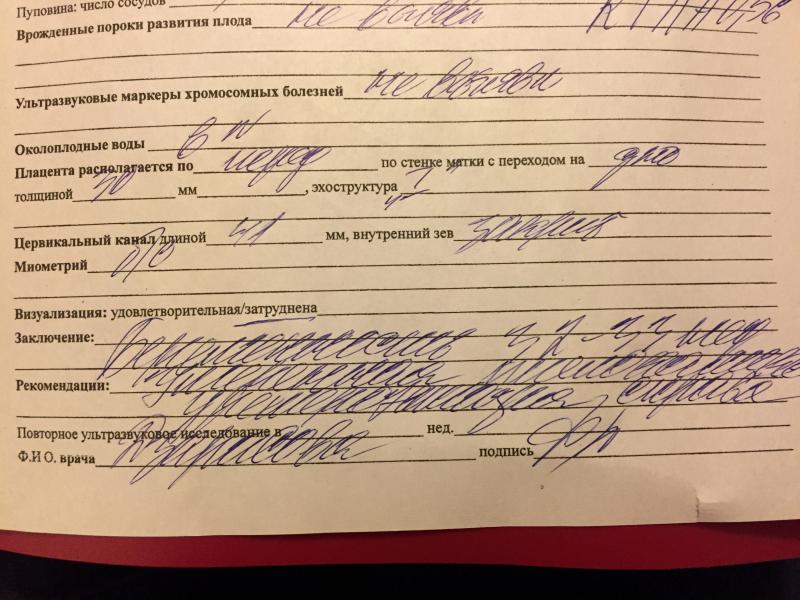 Пуповина: число сосудов
Врожденные пороки развития плода не выявл
Ультразвуковые маркеры хромосомных болезней не выявлен
Околоплодные воды в N
Плацента располагается по перед по стенке матки с переходом на дно
толщиной 30 мм , эхоструктура
Цервикальный канал длиной 41 мм, внутренний зев закрыт
Миометрий б/о
Визуализация: удовлетворительная/затруднена
Заключение: Беременность 32-33 нед
Рекомендации:
Повторное ультразвуковое исследование в нед.
Ф.И О. врача подпись